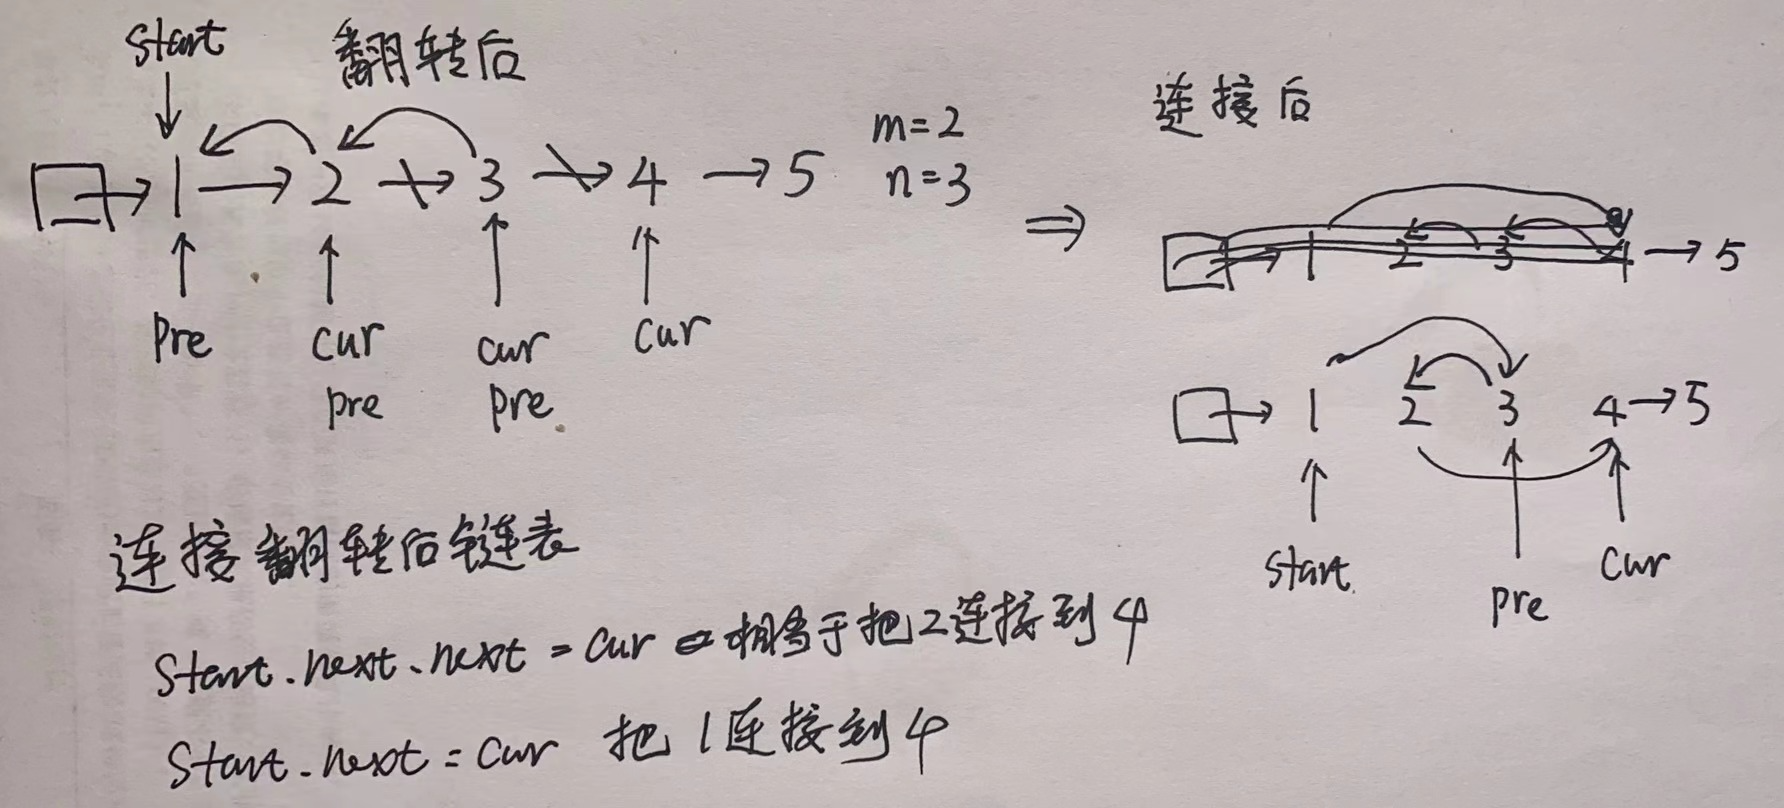 start 翻转后
1 2 3 4 5 m=2
n=3
pre cur cur cur
pre pre
连接后
1 2 3 4 5
1 2 3 4 5
start pre cur
连接翻转后链表
start.next.next = cur 相当于把2连接到4
start.next = cur 把1连接到4